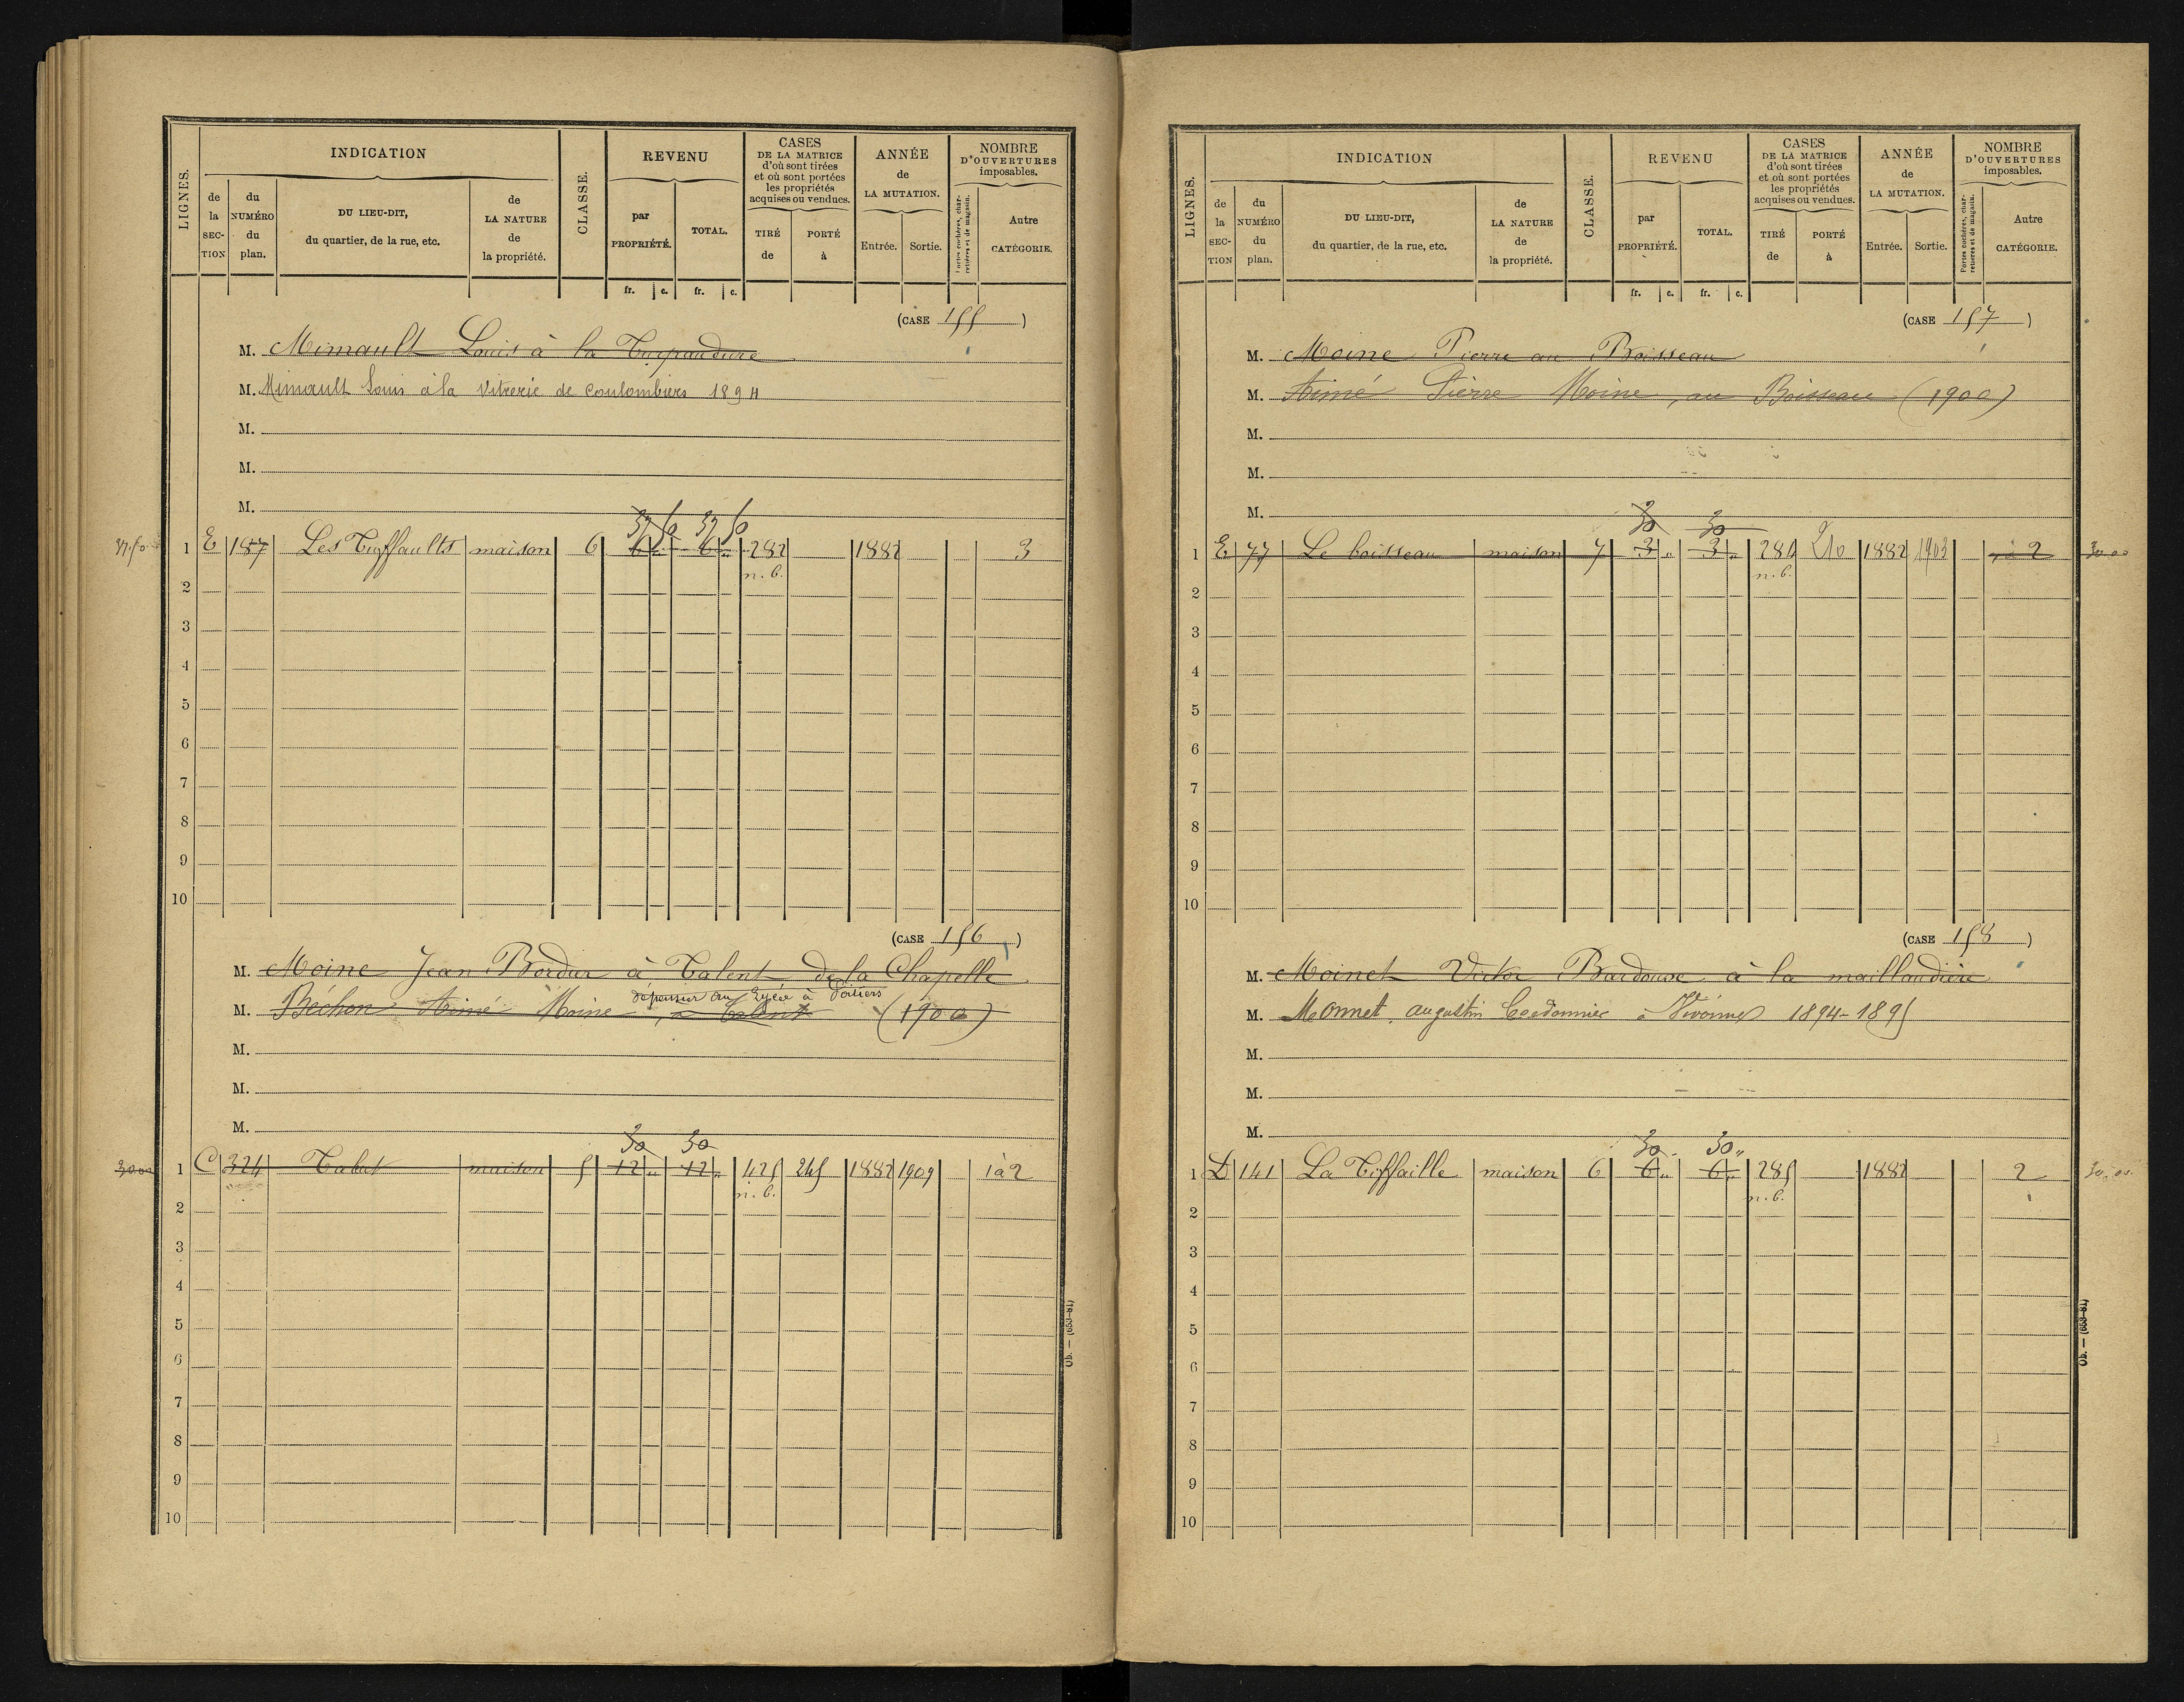 LIGNES.
INDICATION
de la SECTION
du NUMÉRO du plan.
DU LIEU-DIT, du quartier, de la rue, etc.
de LA NATURE de la propriété.
CLASSE.
REVENU
par PROPRIÉTÉ.
TOTAL.
fr. c. fr. c.
CASES DE LA MATRICE d'où sont tirées et où sont portées les propriétés acquises ou vendues.
TIRÉ de
PORTÉ à
ANNÉE de LA MUTATION.
Entrée. Sortie.
NOMBRE D'OUVERTURES imposables.
Portes cochères, charretières et de magasin.
Autre CATÉGORIE.
(CASE 155)
M. Mimault Louis à la
M. Mimault Louis à la Vitrerie de Coulombiers 1894
M.
M.
M.
37 50 37 50
37.50 1 E 187 Les Tuffaults maison 6 6 „ 6 „ 282 1882 3
n.b.
2
3
4
5
6
7
8
9
10
(CASE 156)
M. Moine Jean Bordier à Talent de la Chapelle
dépensier au Lycée à Poitiers
M. Béchon Aimé Moine, à Talent (1900)
M.
M.
M.
30 30
30.00 1 C 324 Talut maison 5 12 „ 12 „ 425 245 1882 1909 1 à 2
n.b.
2
3
4
5
6
7
8
9
10
Ob. — (653-81)
LIGNES.
INDICATION
de la SECTION
du NUMÉRO du plan.
DU LIEU-DIT, du quartier, de la rue, etc.
de LA NATURE de la propriété.
CLASSE.
REVENU
par PROPRIÉTÉ.
TOTAL.
fr. c. fr. c.
CASES DE LA MATRICE d'où sont tirées et où sont portées les propriétés acquises ou vendues.
TIRÉ de
PORTÉ à
ANNÉE de LA MUTATION.
Entrée. Sortie.
NOMBRE D'OUVERTURES imposables.
Portes cochères, charretières et de magasin.
Autre CATÉGORIE.
(CASE 157)
M. Moine Pierre au Boisseau
M. Aimé Pierre Moine, au Boisseau (1900)
M.
M.
M.
30 30
1 E 77 Le boisseau maison 7 3 „ 3 „ 284 210 1882 1903 2 30.00
n.b.
2
3
4
5
6
7
8
9
10
(CASE 158)
M. Moinet Victor Bardoux à la maillaudière
M. Monnet, augustin Cordonnier à Vivonne 1894-1895
M.
M.
M.
30 30 „
1 D 141 La Tiffaille maison 6 6 „ 6 „ 285 1882 2 30.00
n.b.
2
3
4
5
6
7
8
9
10
Ob. — (653-81)